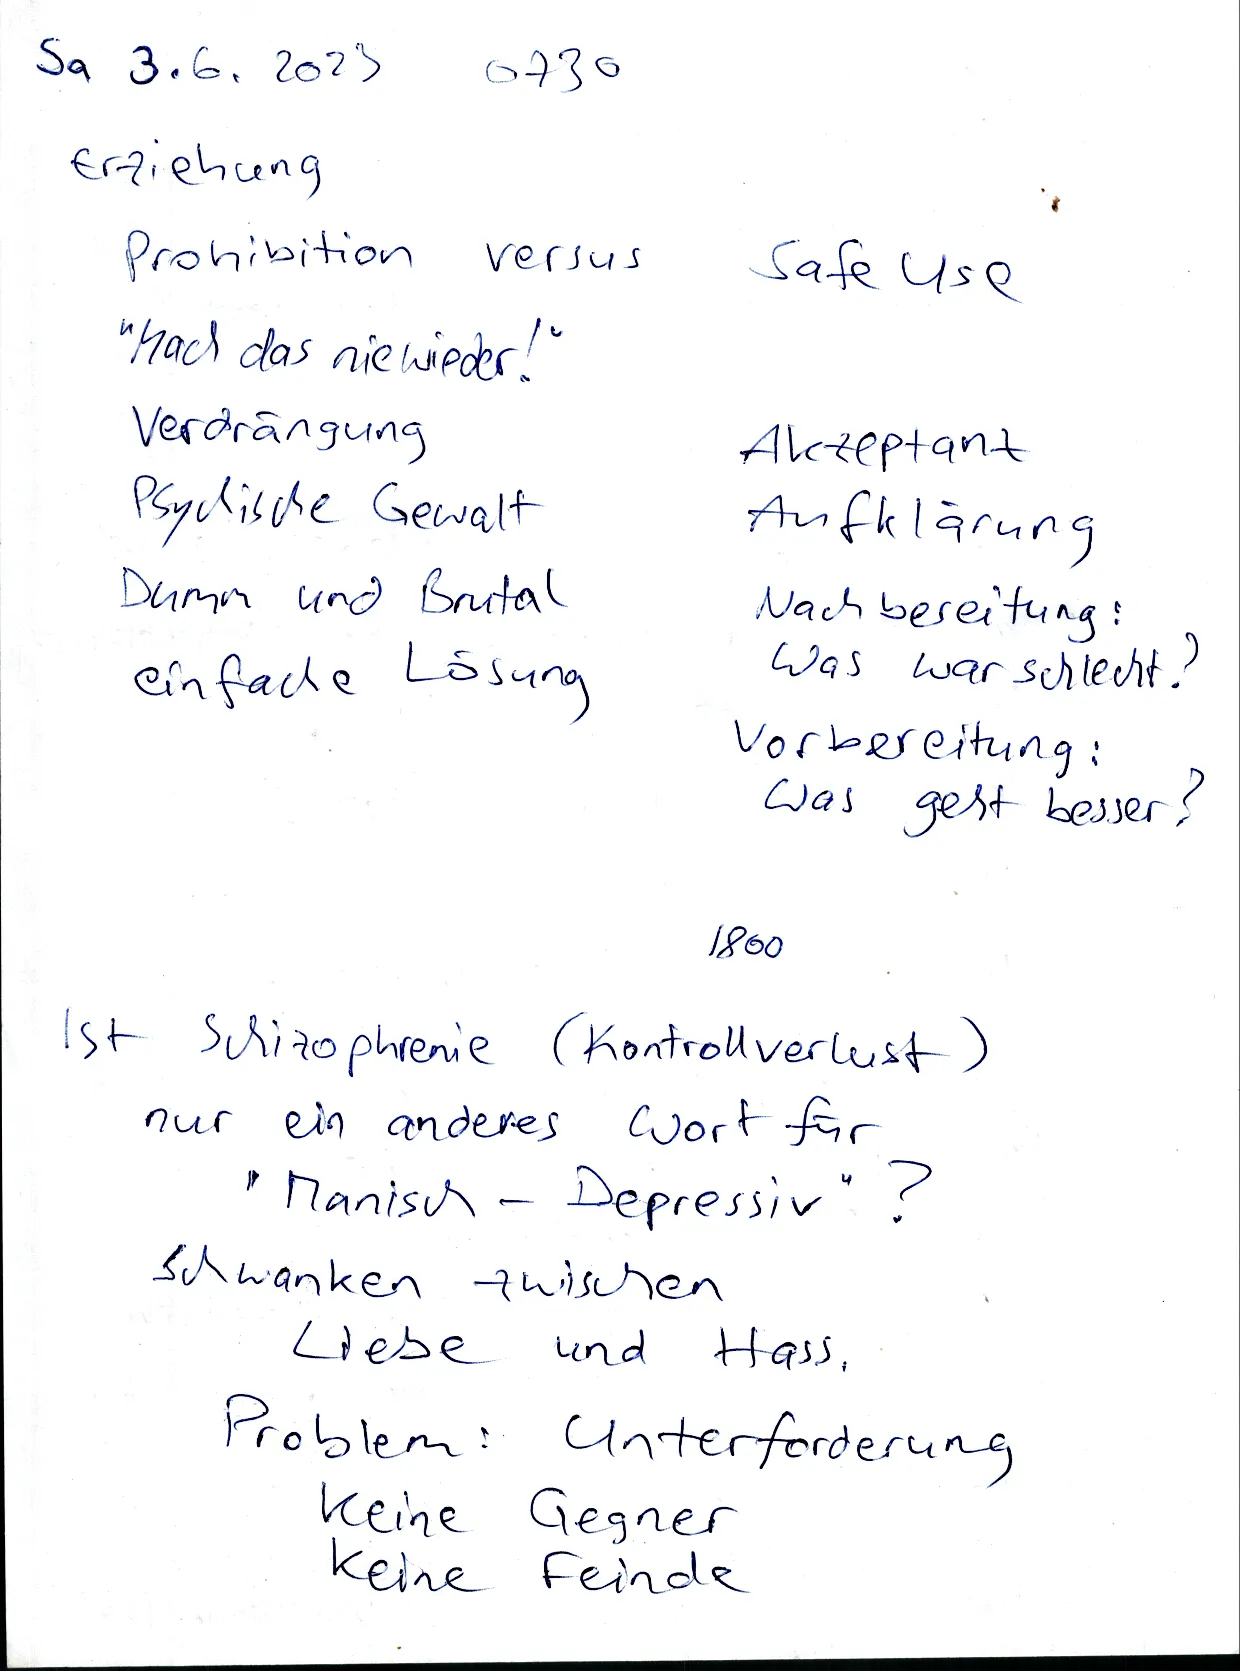 Sa 3.6. 2023 0730
Erziehung
Prohibition versus Safe Use
"Mach das nie wieder!"
Verdrängung
Akzeptanz
Psychische Gewalt
Aufklärung
Dumm und Brutal
Nachbereitung:
einfache Lösung
Was war schlecht?
Vorbereitung:
Was geht besser?
1800
Ist Schizophrenie (Kontrollverlust)
nur ein anderes Wort für
"Manisch - Depressiv"?
Schwanken zwischen
Liebe und Hass.
Problem: Unterforderung
keine Gegner
keine Feinde